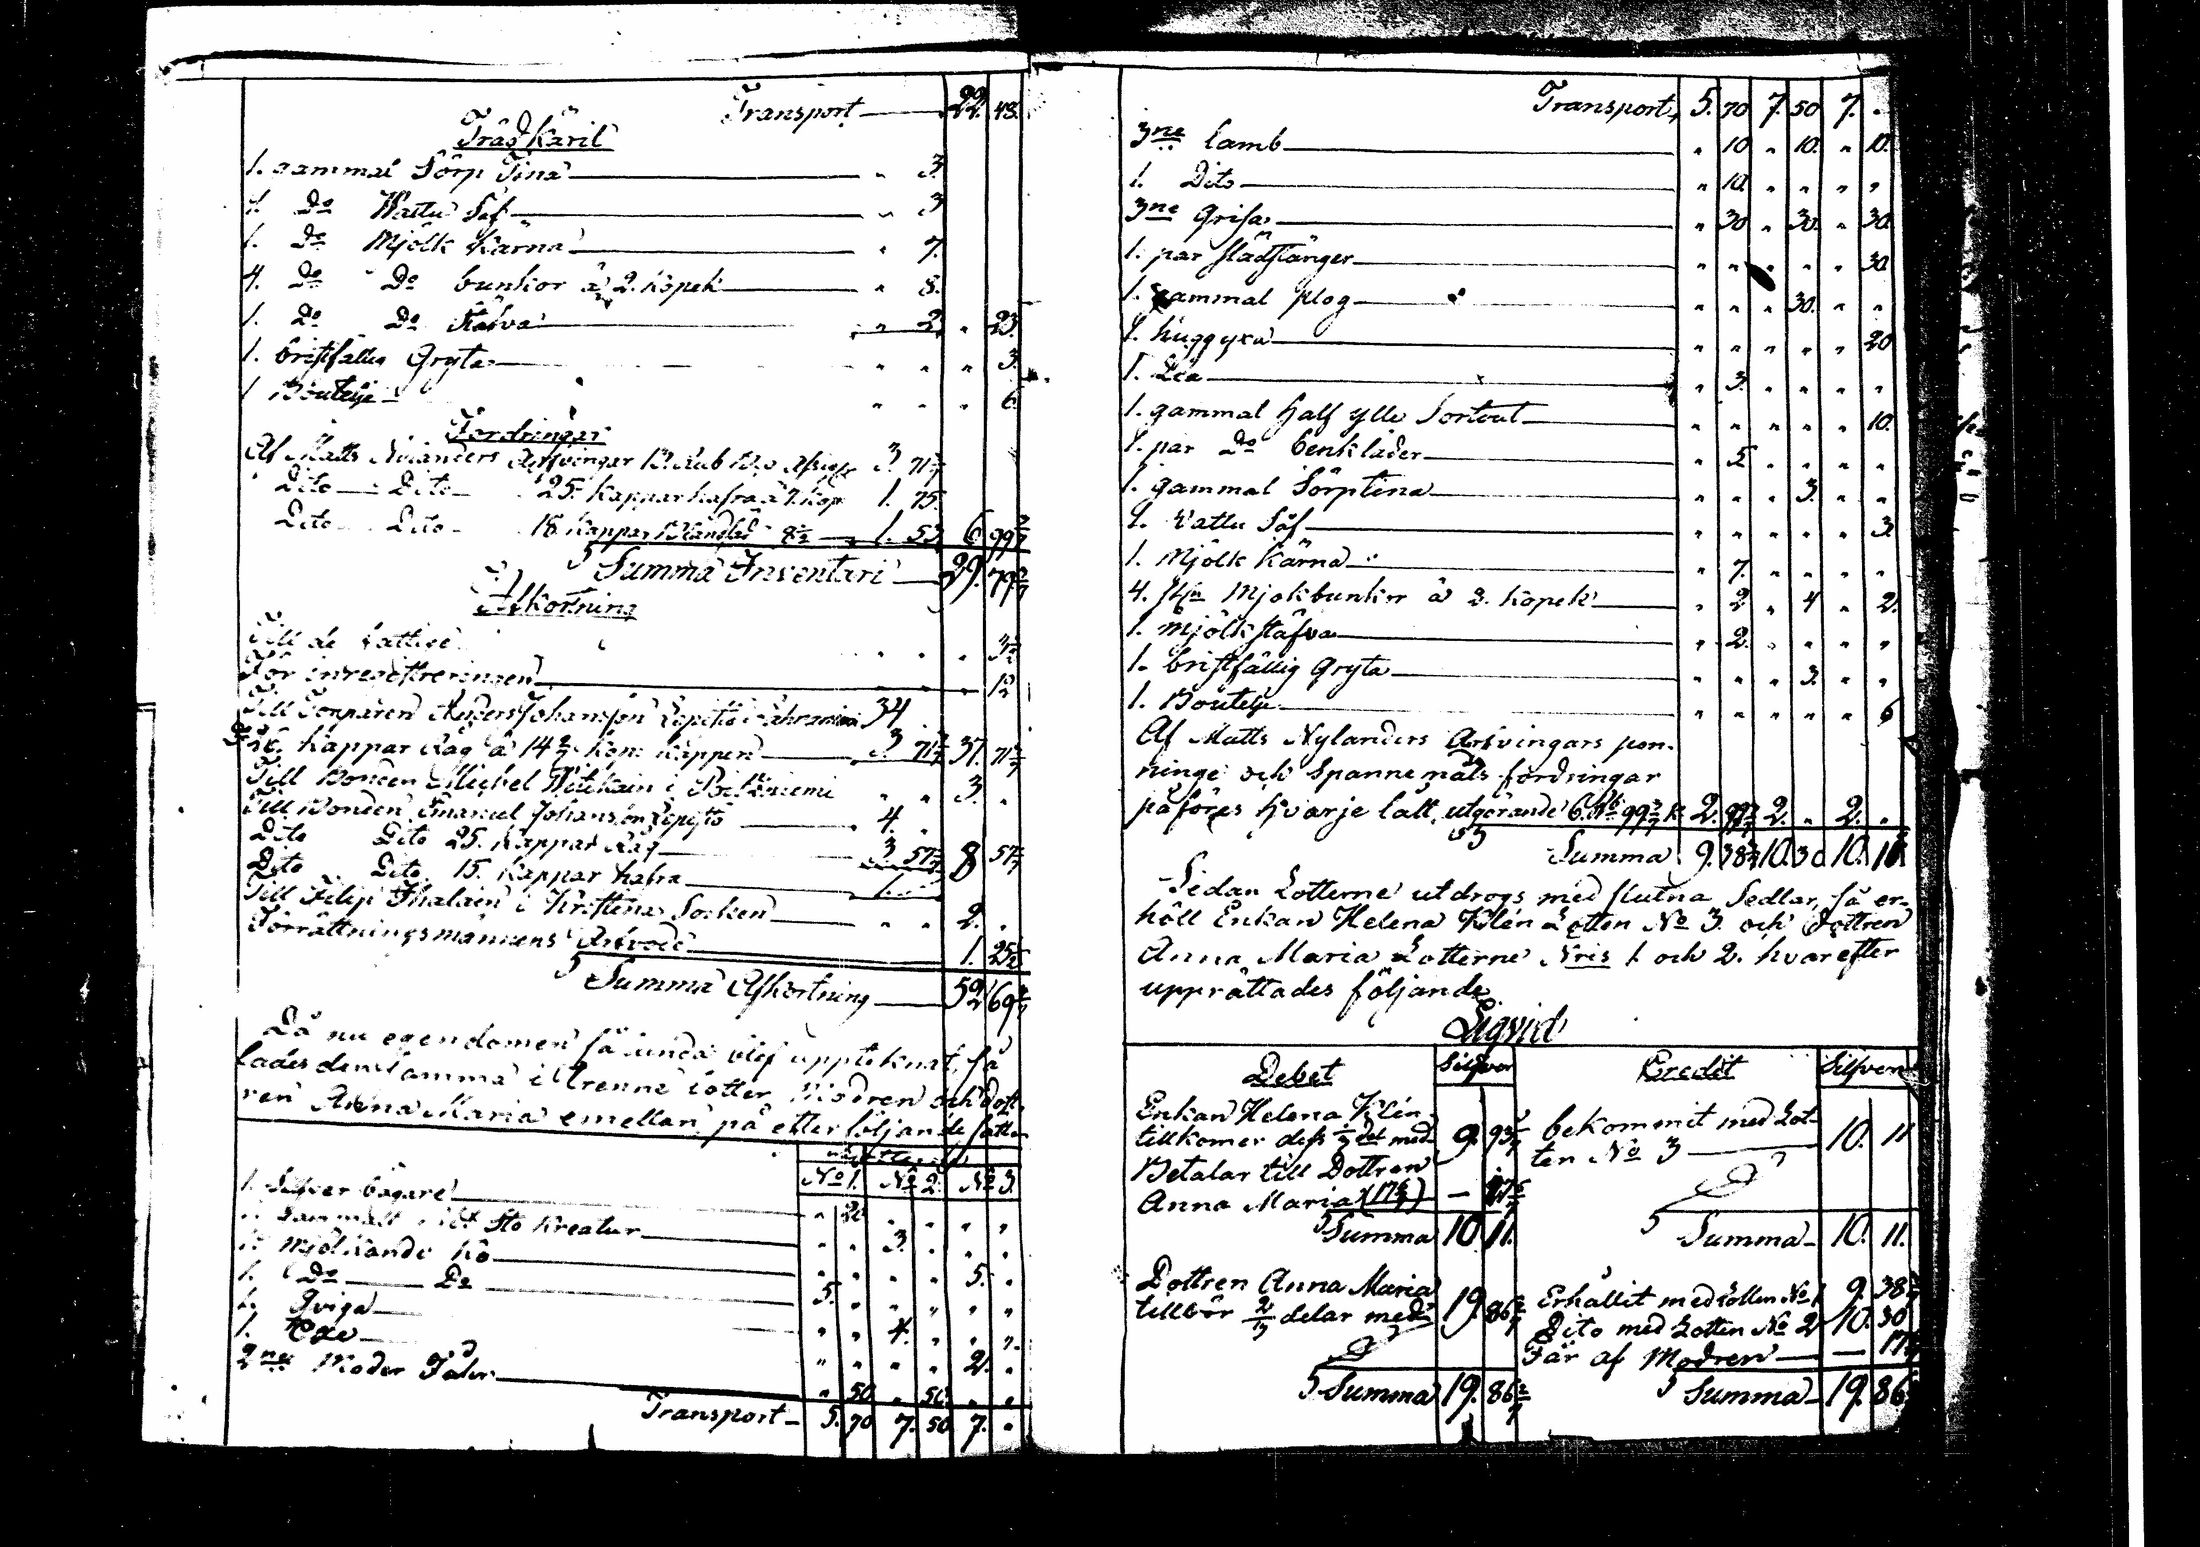 Transport 22. 48.
Träd Käril
1. gammal Sörp Tina " 3.
1. Do Vattu Så " 3
1. Do Mjölk Kärna " 7.
4. Do Do bunkor à 2. Kopek " 8.
1. Do Do Stäfva " 2. " 23.
1. bristfällig Gryta " " " 3.
1 Boutelje " " " 6.
Fordringar
Af Matts Nylanders Arfvingar 3. 71 3/7
Dito Dito 25. Kappar hafra à 7. Kop 1. 75.
Dito Dito 18 Kappar Blandsäd 8 1/2 1. 53 6 99 3/7
Summa Inventarii 29. 79 3/7
Afkortning
Till de fattige " " " 3 1/2
För inregistreringen 12
Till Torparen Anders Johansson 34
26. Kappar Råg à 14 2/7 Kop: Kappen 3. 71 3/7 37. 71 3/7
Till Bonden Michel " " 3. "
Till Bonden Emanuel Johansson 4. "
Dito Dito 25. Kappar Råg 3 57 1/7 8 57 1/7
Dito Dito 15. Kappar hafra 1.
Till Filip Thalain i Kristina Socken " " 2. "
Förrättningsmannens Arfvode 1. 25 1/2
Summa Afkortning 52 69
Då nu egendomen så lunda blef uppteknat, så
lades densamma i trenne lotter Modren och dott-
ren Anna Maria emellan, på efterföljande sätt
No 1. No 2. No 3.
1. Silfver bägare " 20 " " " "
1. Gammalt Sto Kreatur " " 3. " " "
1. Mjölkande Ko " " " " 5. "
1. Do Do 5. " " " " "
1. Qviga " " 4. " " "
1. Oxe " " " " 2. "
2ne Moder Fåhr " 50 " 50 " "
Transport 5. 70 7. 50 7. "
Transport 5. 70 7. 50 7. "
3ne lamb " 10 " 10. " 10.
1. Dito " 10. " " " "
3ne Grisar " 30 " 30. " 30.
1. par slädstänger " " " " " 30.
1. gammal plog " " " 30. " "
1. huggyxa " " " " " 20
1. Lia " 3. " " " "
1. gammal half ylle Sortout " " " " " 10.
1. par Do benkläder " 5 " " " "
1. gammal Sörptina " " " 3. " "
1. Vattu Så " " " " " 3
1. Mjölk Kärna " 7. " " " "
4. st Mjölkbunkor à 2. Kopek " 2 " 4 " 2.
1. Mjölk stäfva " 2. " " " "
1. bristfällig Gryta " " " 3. " "
1. Boutelje " " " " " 6
Af Matts Nylanders Arfvingars pen-
ninge och Spannemåls fordringar
påföres hvarje lått, utgörande 6. Rub 99 3/7 K. 2. 99 3/7 2. " 2. "
Summa 9. 38 3/7 10. 30 10. 11
Sedan Lotterne utdrogs med slutna Sedlar, så er-
höll Enkan Helena Klén Lotten No 3. och Dottren
Anna Maria Lotterne Nris 1 och 2. hvarefter
upprättades följande
Liqvid
Debet Silfver Credit Silfver
Enkan Helena Klén
tillkomer dess 1/3 det med 9. 93 1/7
Betalar till Dottren
Anna Maria (17 6/7) — 17 6/7
Summa 10 11.
bekommit med Lot-
ten No 3 10. 11
Summa 10. 11.
Dottren Anna Maria
tillhör 2/3 delar med 19. 86 2/7
Summa 19. 86 2/7
Erhållit med Lotten No 1 9. 38
Dito med Lotten No 2 10. 30
Får af Modren — 17
Summa 19. 86